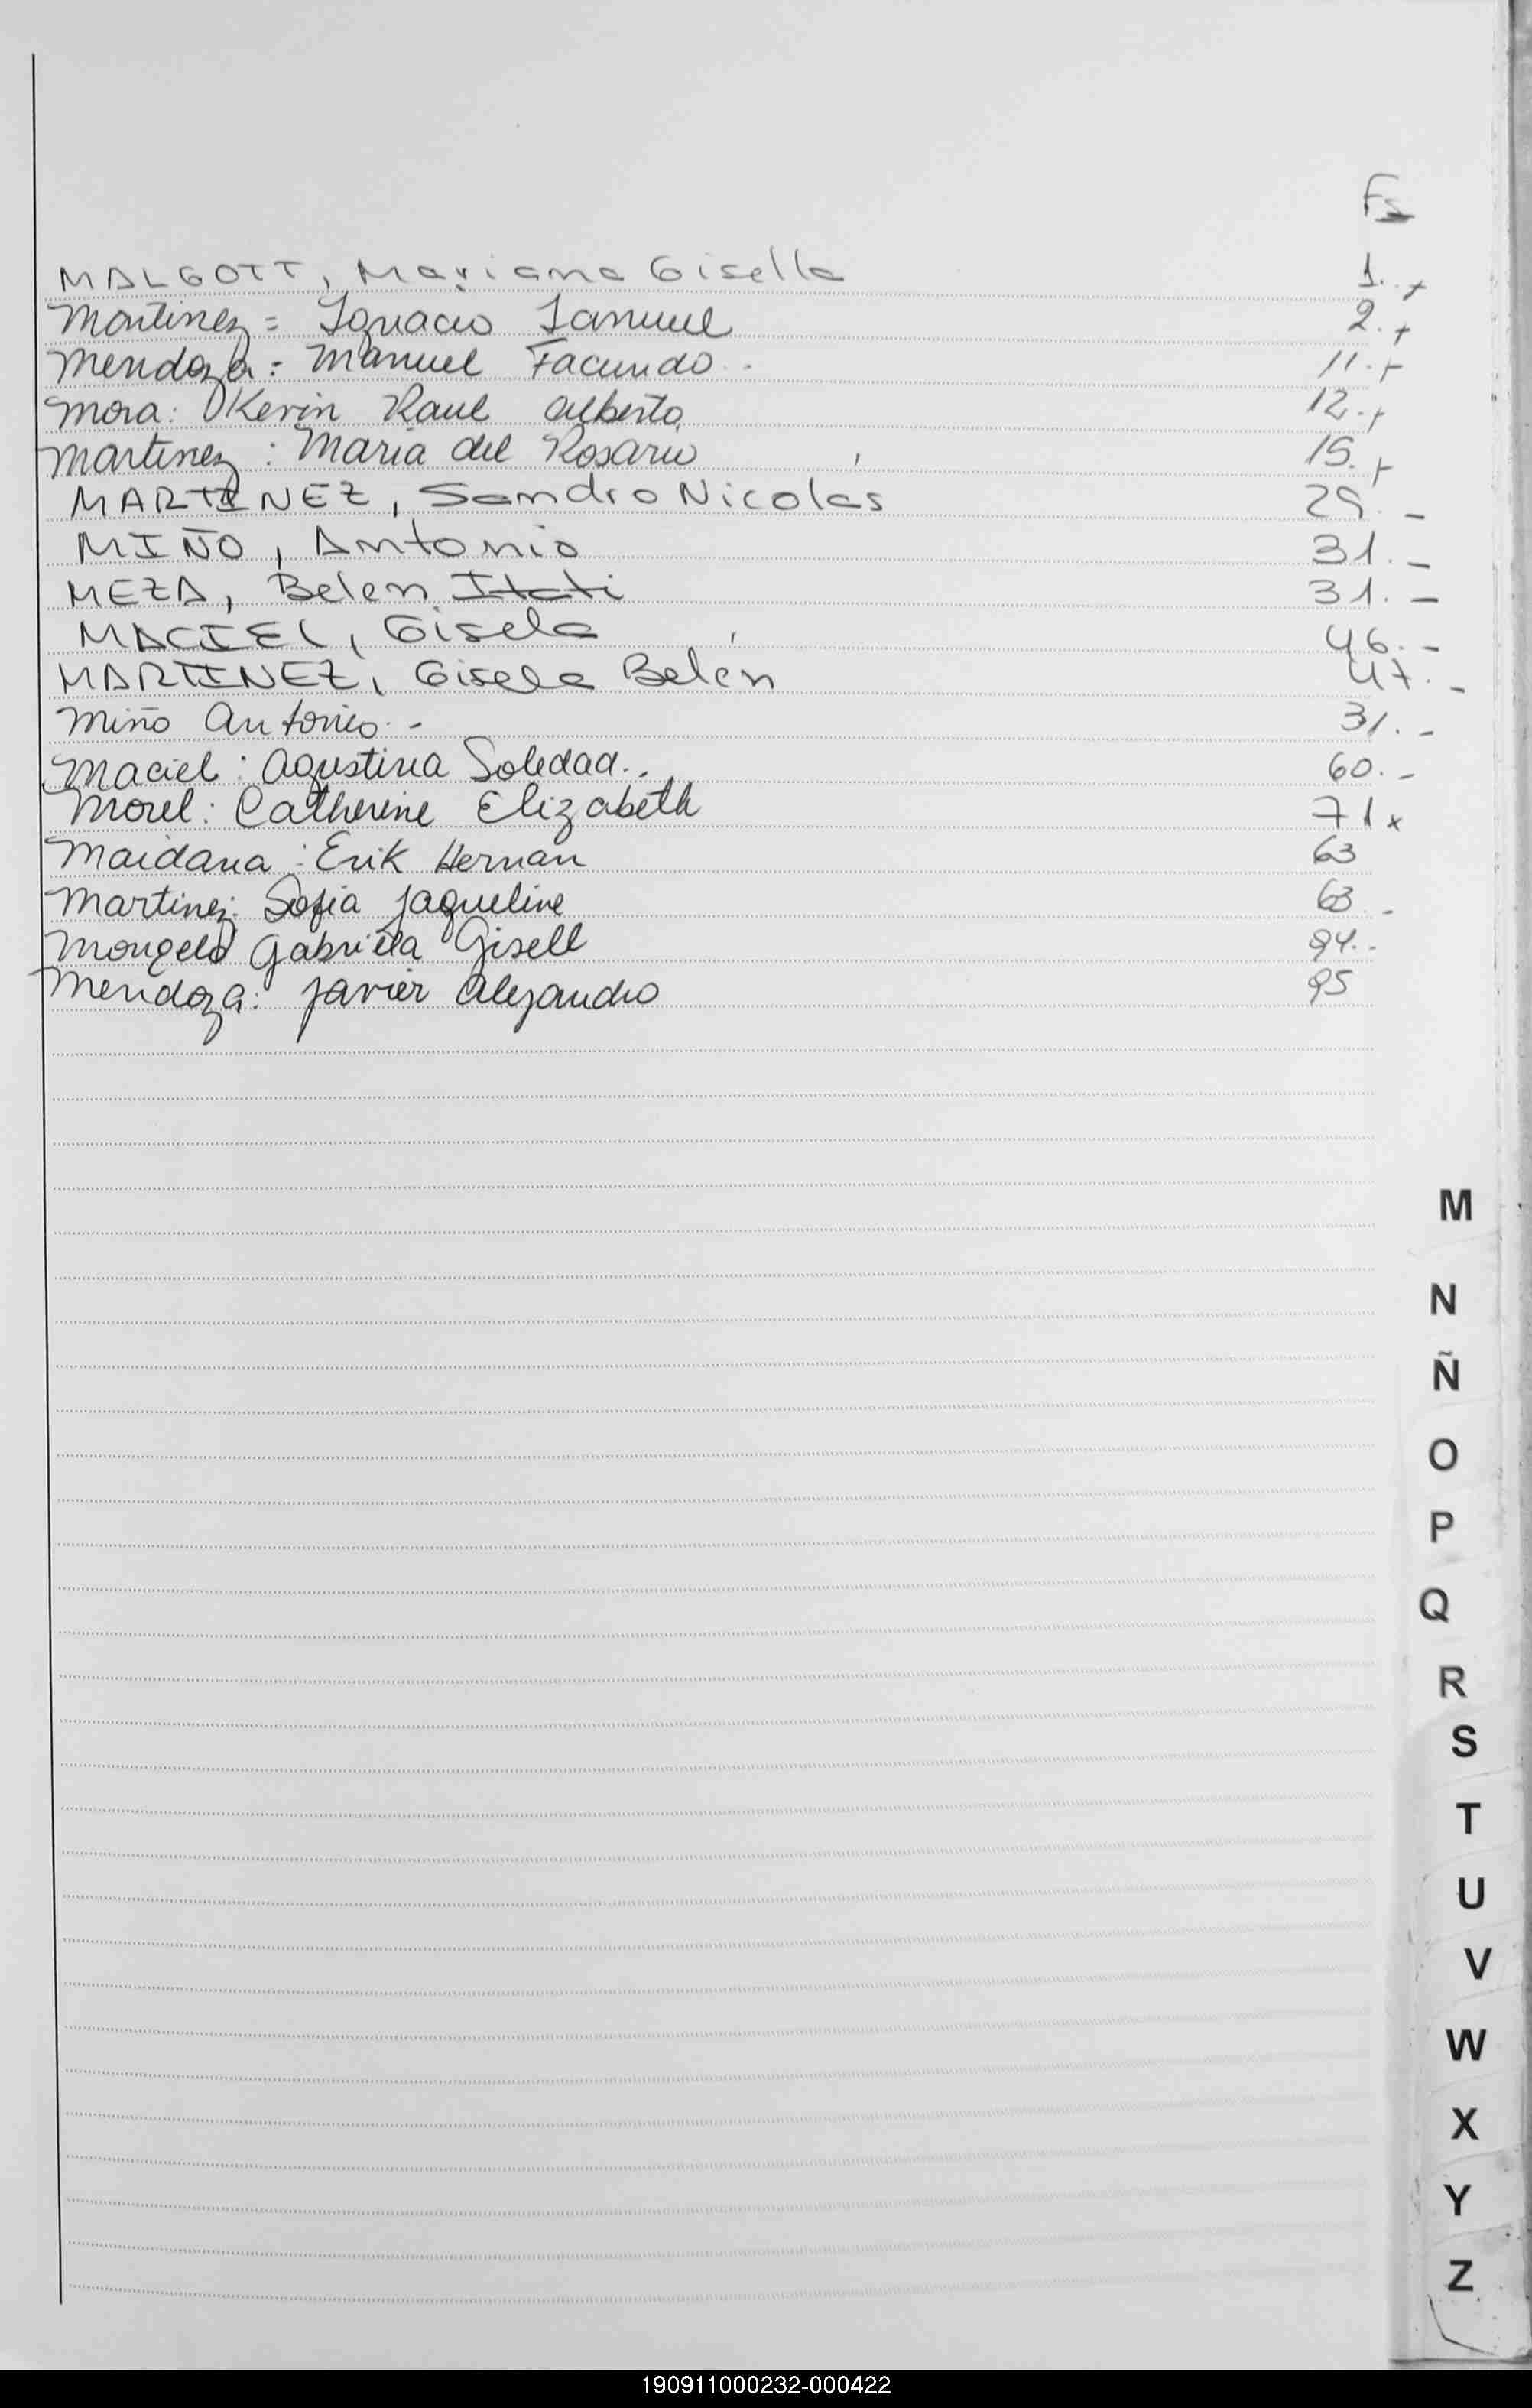 Fs
MALGOTT, Mariana Gisella 1. +
Martinez = Ignacio Samuel 2. +
Mendoza: Manuel Facundo. 11. +
Mora: Kevin Raul Alberto 12. +
Martinez: Maria del Rosario 15. +
MARTINEZ, Sandro Nicolás 29. -
MIÑO, Antonio 31. -
MEZA, Belen Itati 31. -
MACIEL, Gisela 46. -
MARTINEZ, Gisela Belén 47. -
Miño Antonio. - 31. -
Maciel: Agustina Soledad.. 60. -
Morel: Catherine Elizabeth 71 x
Maidana: Erik Hernan 63
Martinez: Sofia Jaqueline 63. -
Mongelo Gabriela Gisell 94. -
Mendoza: Javier Alejandro 95
M
N
Ñ
O
P
Q
R
S
T
U
V
W
X
Y
Z
190911000232-000422